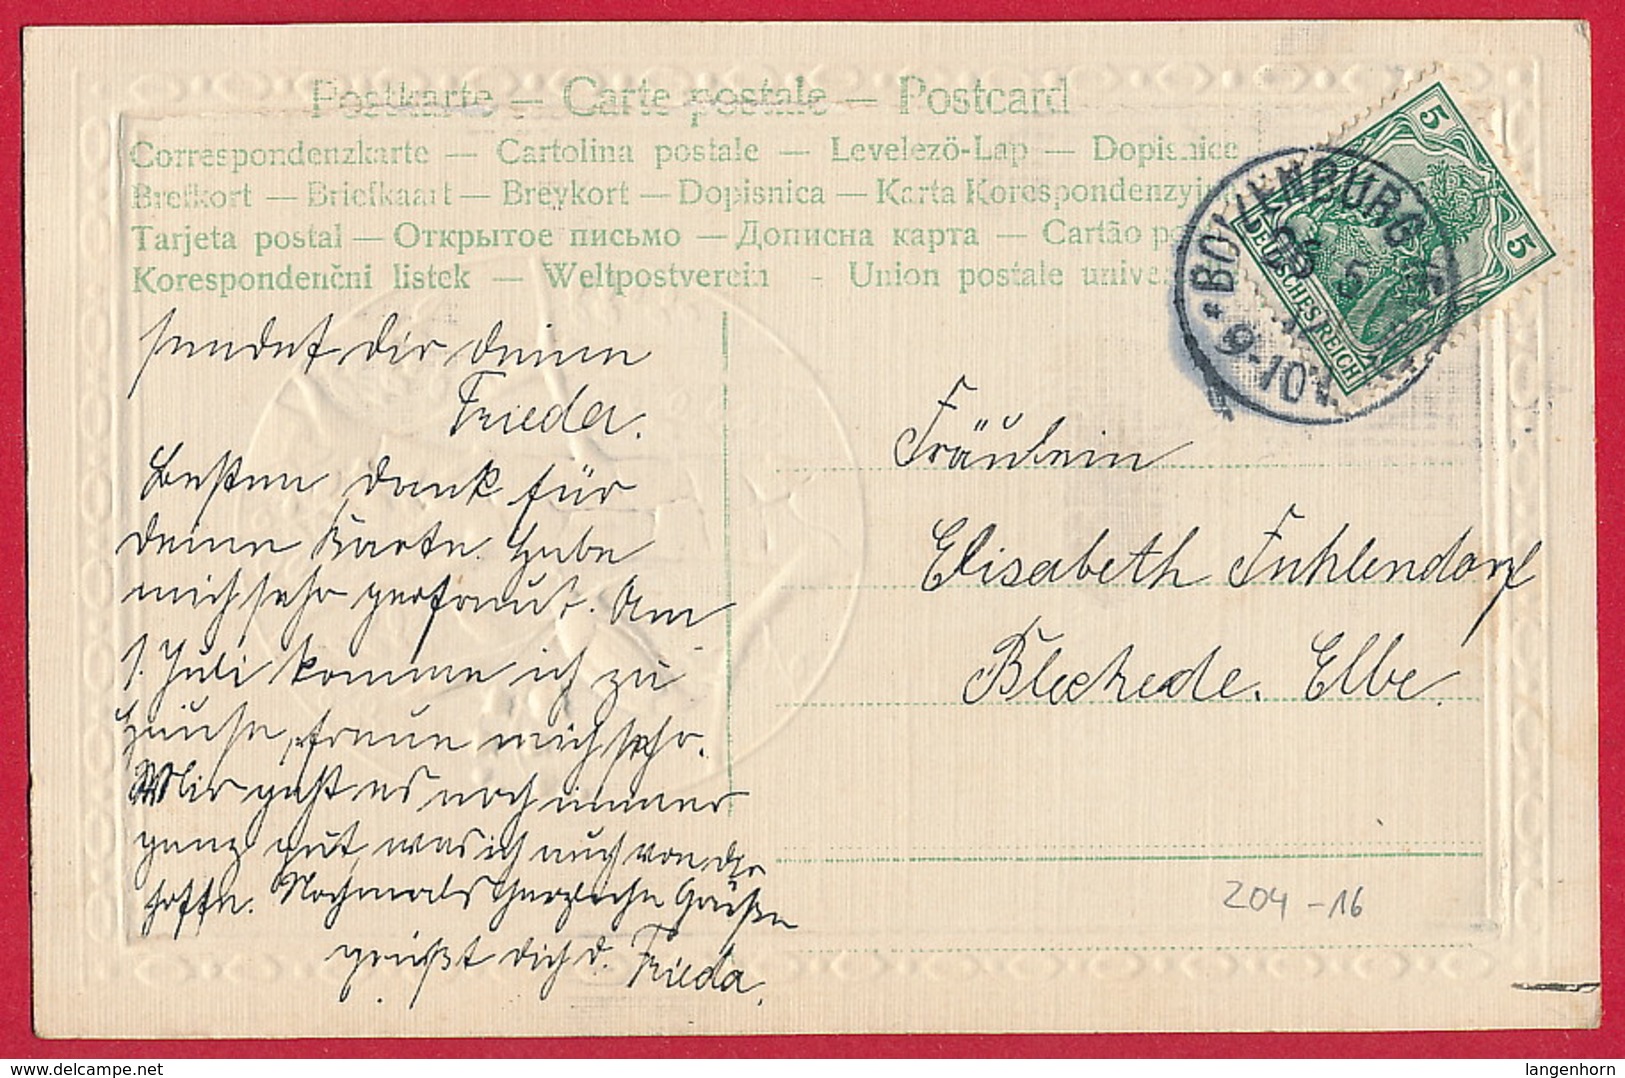 Postkarte — Carte postale — Postcard
Correspondenzkarte — Cartolina postale — Levelezö-Lap — Dopisnice
Brefkort — Briefkaart — Brevkort — Dopisnica — Karta Korespondenzyjn
Tarjeta postal — Открытое письмо — Дописна карта — Cartão po
Korespondenčni listek — Weltpostverein - Union postale unive
5
5
DEUTSCHES REICH
* BOIZENBURG
26 5
9-10V.
sendet dir deine
Frieda.
Besten dank für
deine Karte. Habe
mich sehr gefreut. Am
1. Juli komme ich zu
Hause, freue mich sehr.
Mir geht es noch immer
ganz gut, was ich auch von dir
hoffe. Nochmals herzliche Grüße
grüßt dich d. Frieda.
Fräulein
Elisabeth Fuhlendorf
Bleckede. Elbe.
204-16
langenhorn